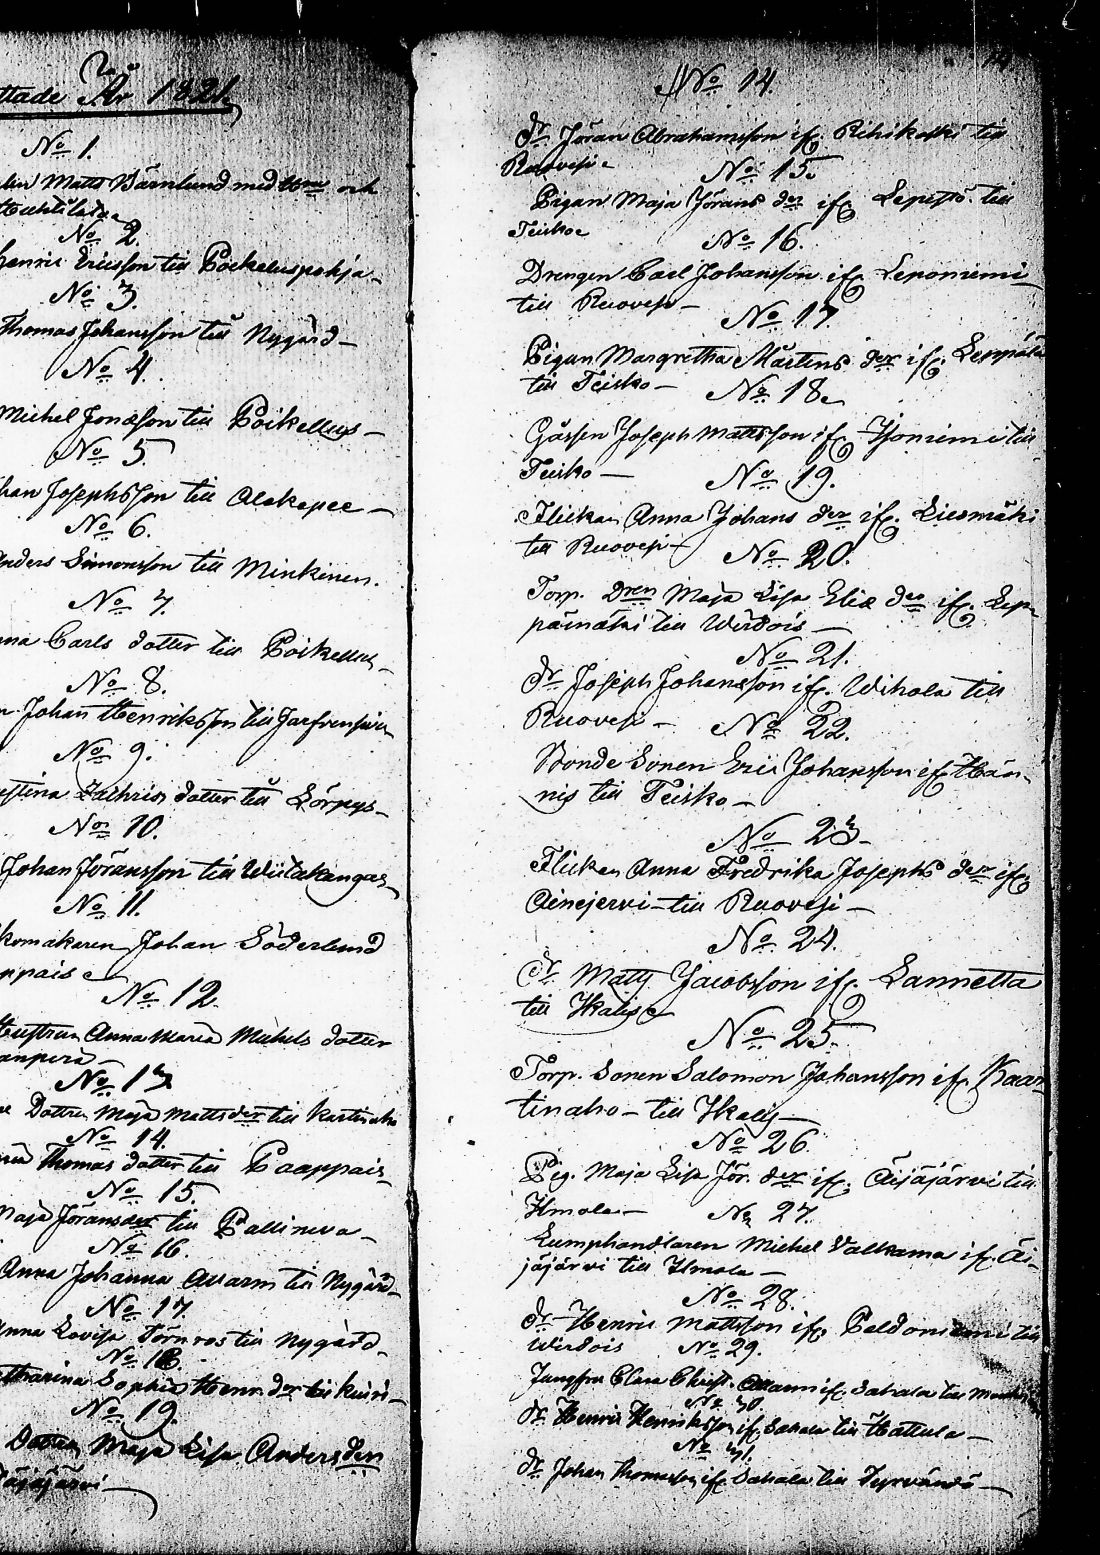 ttade År 1821.
No 1.
Matts Wärnlund med Hru och
Huhtilaka
No 2.
Henric Ericsson till Poikeluspohja
No 3.
Thomas Johansson till Nygård
No 4.
Michel Jonæson till Poikellus
No 5
han Josephsson till Alakepee
No 6.
Anders Simonsson till Minkinen.
No 7.
nna Carls dotter till Poikellus
No 8.
n Johan Henriksson till Jaefvenpää
No 9.
estina Zachris dotter till Lörpys
No 10.
Johan Jöransson till Wiitakangas
No 11.
komakaren Johan Söderlund
ppais
No 12.
Hustrun Anna Maria Michels dotter
anperä
No 13
Dottren Maja Matts der till Kartinaho
No 14.
Thomas dotter till Paappais
No 15.
Maja Jörans der till Pallineva
No 16.
Anna Johanna Allarm till Nygård
No 17.
Anna Lovisa Törnros till Nygård
No 18.
atharina Sophia Henr. der till
No 19.
Dottren Maja Lisa Anders der
Äijäjärvi
No 14.
dr Jöran Abrahamsson if. Rihikoski till
Ruovesi
No 15.
Pigan Maja Jörans der if. Lepistö till
Teisko
No 16.
Drengen Carl Johansson if. Leponiemi
till Ruovesi
No 17.
Pigan Margretha Mårtens der if. Leppälä
till Teisko
No 18.
Gåssen Joseph Mattsson if. Isoniemi till
Teisko
No 19.
Flickan Anna Johans der if. Liesmäki
till Ruovesi
No 20.
Torp. Dren Maja Lisa Eliæ der if. Lep-
pämäki till Wirdois
No 21.
dr Joseph Johansson if. Wihola till
Ruovesi
No 22.
Bonde Sonen Eric Johansson if. Hän-
nis till Teisko
No 23
Flickan Anna Fredrika Josephs der if.
Äinejervi till Ruovesi
No 24.
dr Matts Jacobsson if. Lannetta
till Ikalis
No 25.
Torp. Sonen Salomon Johansson if. Kaar-
tinaho till Ikalis
No 26.
Pig. Maja Lisa Jör. der if. Äijäjärvi till
Ilmola
No 27.
Lumphandlaren Michel Valkama if. Äi-
jäjärvi till Ilmola
No 28.
dr Henric Mattsson if. Peldoniemi till
Wirdois
No 29.
Jungfru Clara Christ. Allarm if. Sahala till
No 30.
dr Henric Henriksson if. Sahala till Hattula
No 31.
dr Johan Thomasson if. Sahala till Tyrvändö